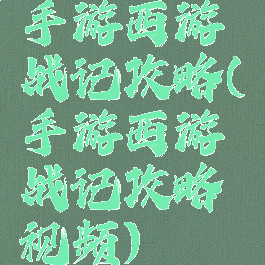 手游西游
战记攻略(
手游西游
战记攻略
视频)